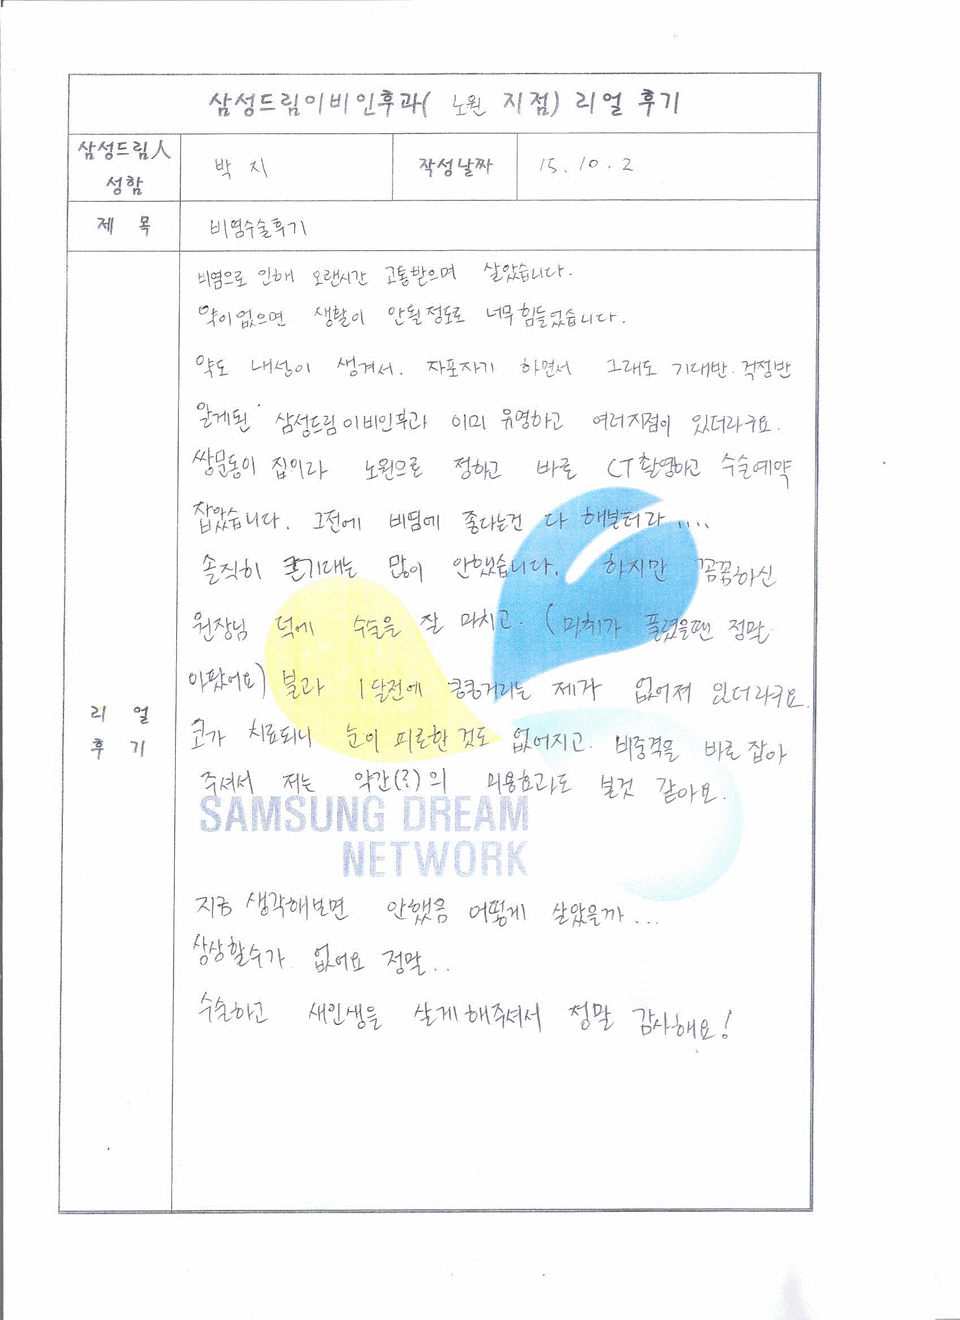 삼성드림이비인후과( 노원 지점) 리얼 후기
삼성드림人 성함
박 지
작성날짜
15.10.2
제 목
비염수술후기
리 얼 후 기
비염으로 인해 오랜시간 고통받으며 살았습니다.
약이없으면 생활이 안될정도로 너무힘들었습니다.
약도 내성이 생겨서. 자포자기 하면서 그래도 기대반.걱정반
알게된 삼성드림이비인후과 이미 유명하고 여러지점이 있더라구요.
쌍문동이 집이라 노원으로 정하고 바로 CT촬영하고 수술예약
잡았습니다. 그전에 비염에 좋다는건 다 해본터라....
솔직히 큰기대는 많이 안했습니다. 하지만 꼼꼼하신
원장님 덕에 수술을 잘 마치고. (마취가 풀렸을땐 정말
아팠어요) 불과 1달전에 킁킁거리는 제가 없어져 있더라구요.
코가 치료되니 눈이 피로한것도 없어지고. 비중격을 바로잡아
주셔서 저는 약간(?)의 미용효과도 볼것 같아요.
SAMSUNG DREAM
NETWORK
지금 생각해보면 안했음 어떻게 살았을까...
상상할수가 없어요 정말..
수술하고 새인생을 살게해주셔서 정말 감사해요!